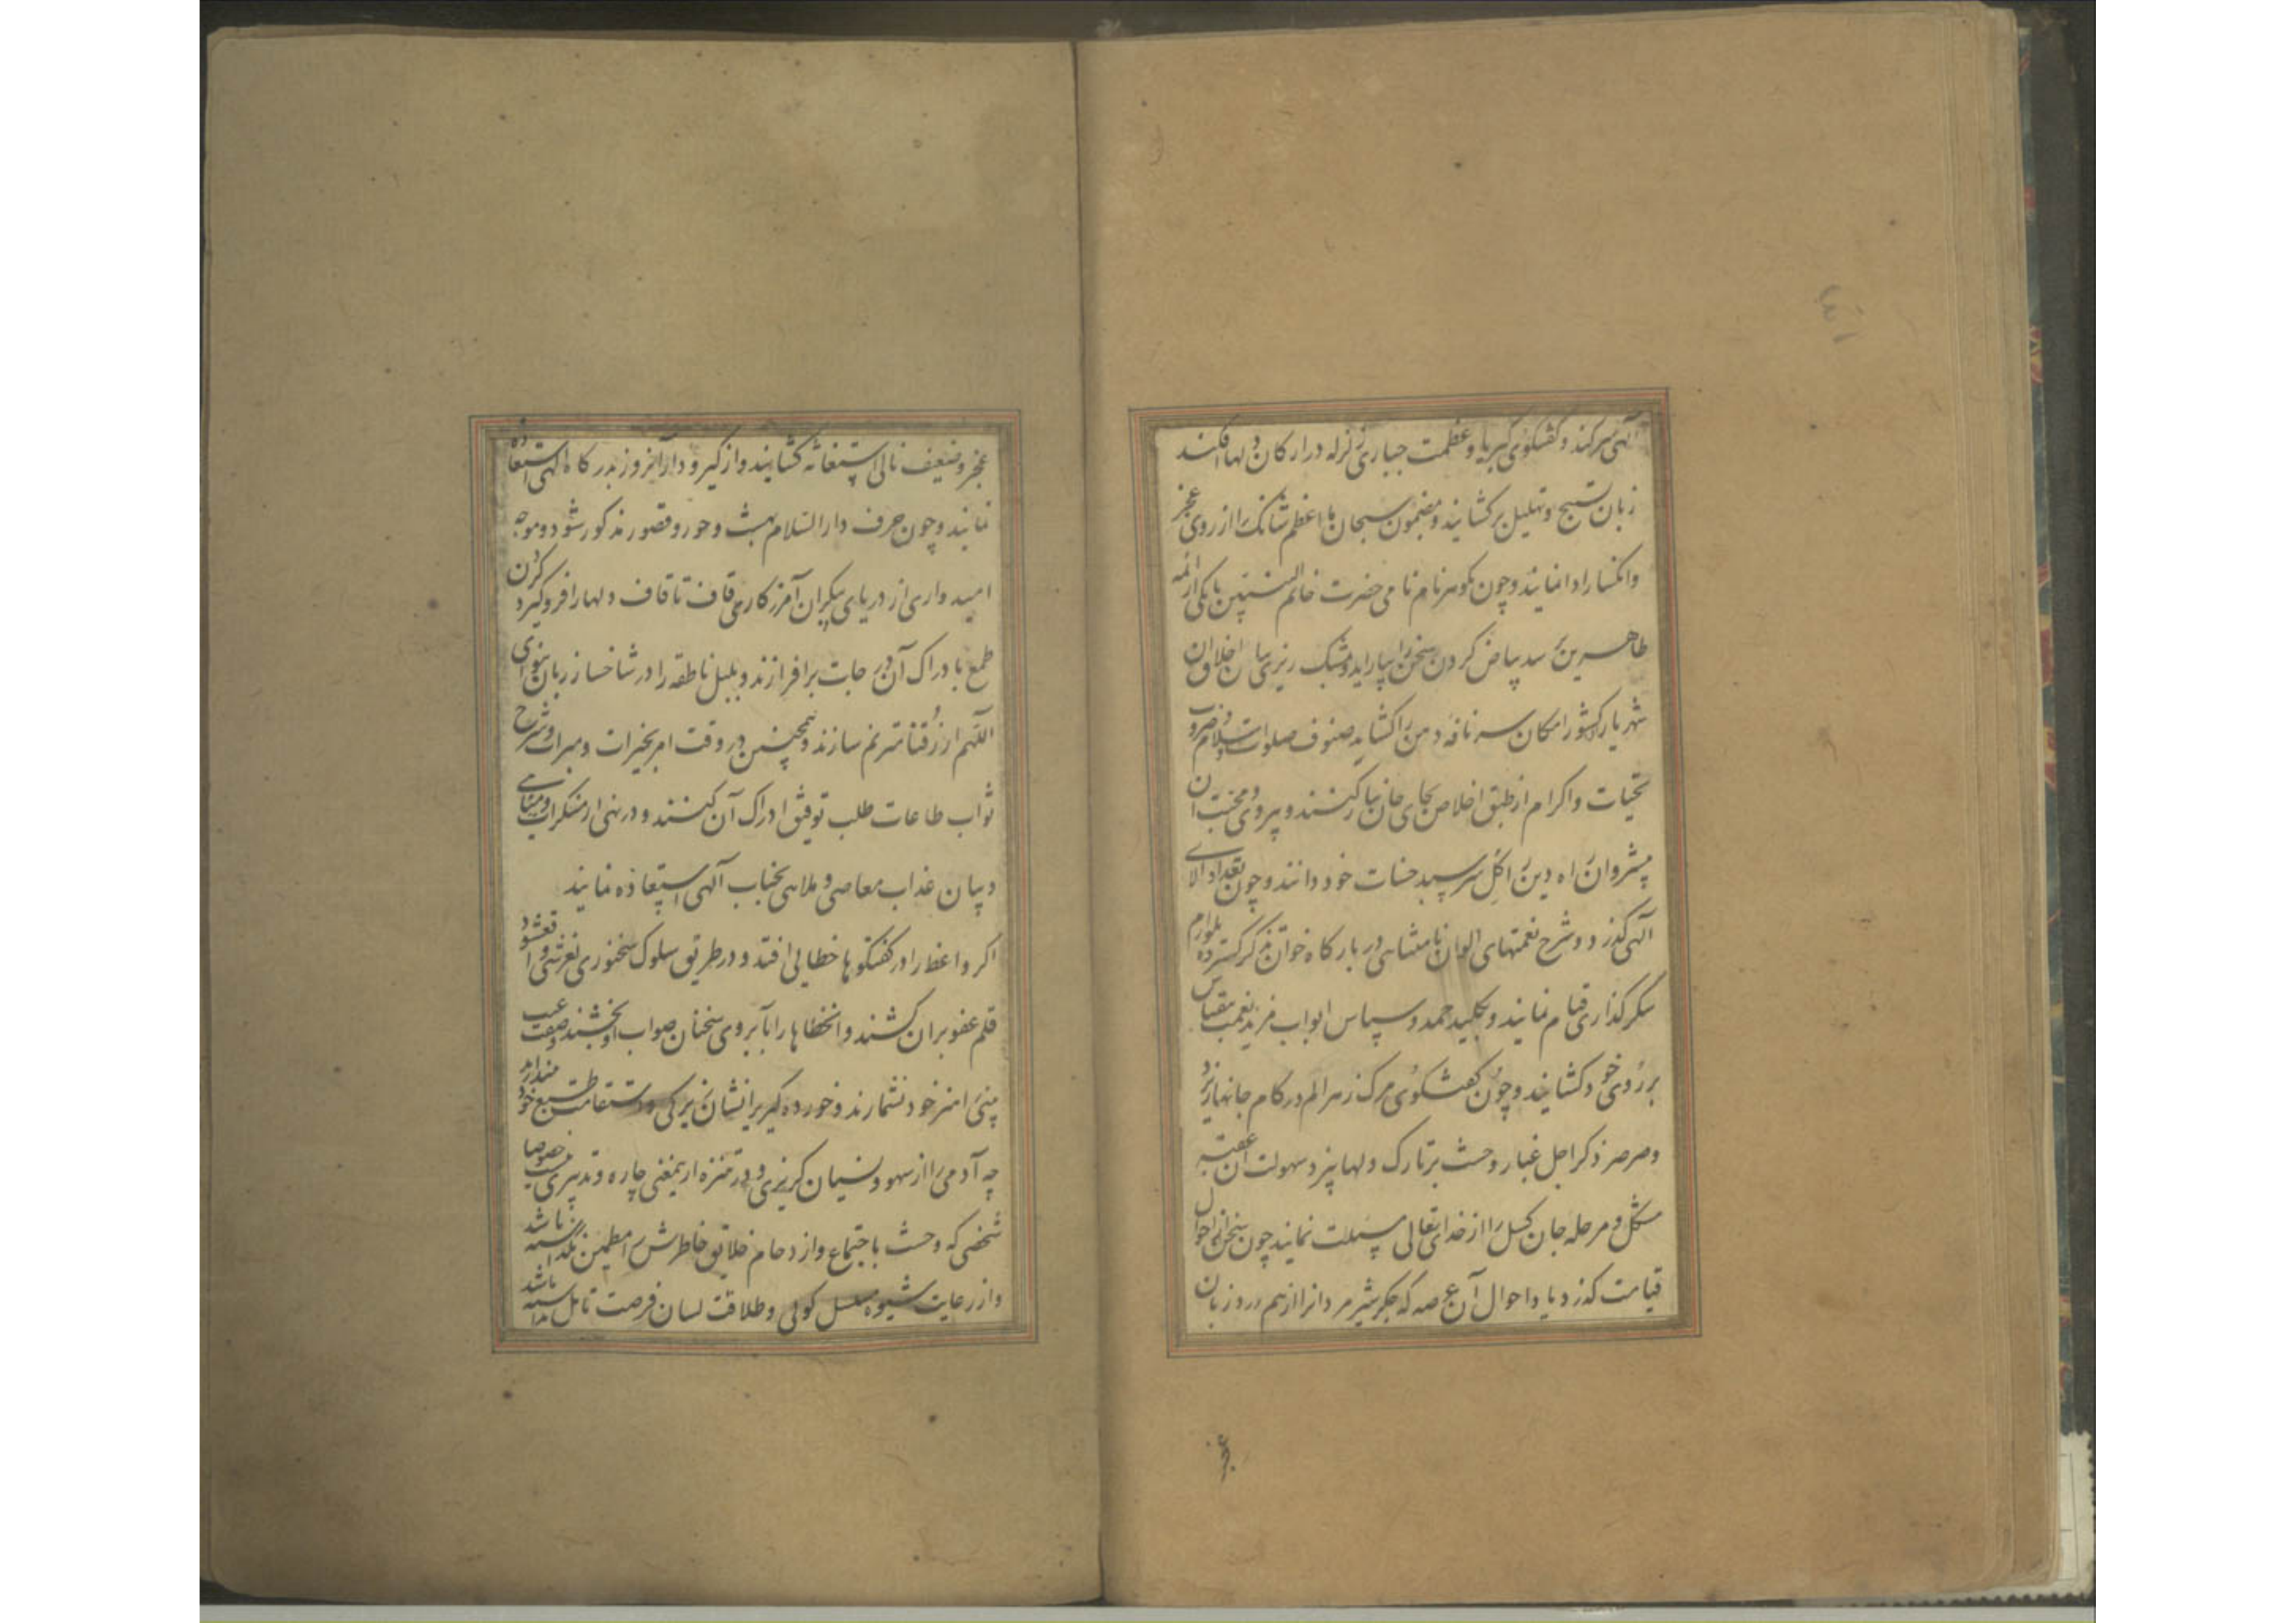 الهی سر کند و گفتگوی کبریا و عظمت جباری زلزله در ارکان دلها افکند
زبان تسبیح و تهلیل برکشایند و مضمون سبحان ما اعظم شانک را از روی عجز
و انکسار ادا نمایند و چون گوهر نام نامی حضرت خاتم النبیین یا یکی از ائمه
طاهرین سد بیاض گردن سخن را بیاراید و مشک ریزی بیان اخلاق آن
شهریار کشور امکان سر نافه دمن را کشاید صنوف صلوات و سلام و ضروب
تحیات و اکرام از طبق اخلاص بجای جان نثار کنند و پیروی و محبت آن
پیشروان راه دین را گل سر سبد حسنات خود دانند و چون تعداد آلای
الهی گذرد و شرح نعمتهای الوان نامتناهی در بارگاه خوان گسترده بلوازم
شکرگذاری قیام نمایند و بکلید حمد و سپاس ابواب مزید نعمت بیقیاس
بر روی خود کشایند و چون گفتگوی مرگ زهر الم در کام جانها ریزد
و صرصر ذکر اجل غبار وحشت بر تارک دلها بیزد سهولت آن عقبه
مشکل و مرحله جان گسل را از خدای تعالی مسئلت نمایند چون سخن از احوال
قیامت گذرد یا داحوال آن عرصه که جگر شیر مردانرا از هم درد زبان
عجز
عجز و ضعف نالی استغاثه کشایند و از گیر و دار آنروز بدرگاه الهی استعاذه
نمایند و چون حرف دار السلام بهشت و حور و قصور مذکور شود و موجه
امیدواری از دریای بیکران آمرزگاری قاف تا قاف دلها را فرو گیرد گردن
طمع بادراک آن درجات برافرازند و بلبل ناطقه را در شاخسار زبان بنوای
اللهم ارزقنا مترنم سازند و همچنین در وقت امر بخیرات و مبرات و شرح
ثواب طاعات طلب توفیق ادراک آن کنند و در نهی از منکرات و مناهی
و بیان عذاب معاصی و ملاهی بجناب الهی استعاذه نمایند
اگر واعظ را در گفتگوها خطائی افتد و در طریق سلوک سخنوری لغزشی واقع شود
قلم عفو بر ان کشند و انخطاها را بآبروی سخنان صواب او بخشند و صفت عیب
بینی را هنر خود نشمارند و خورده گیری را نشان زیرکی و استقامت طبع خود مپندارند
چه آدمی را از سهو و نسیان گریزی و در تنزه از یمعنی چاره و تدبیری نیست خصوصا
شخصی که وحشت باجتماع و ازدحام خلایق خاطرش را مطمئن نگذاشته باشد
و از رعایت شیوه مسلسل گوئی و طلاقت لسان فرصت تامل نداشته باشد